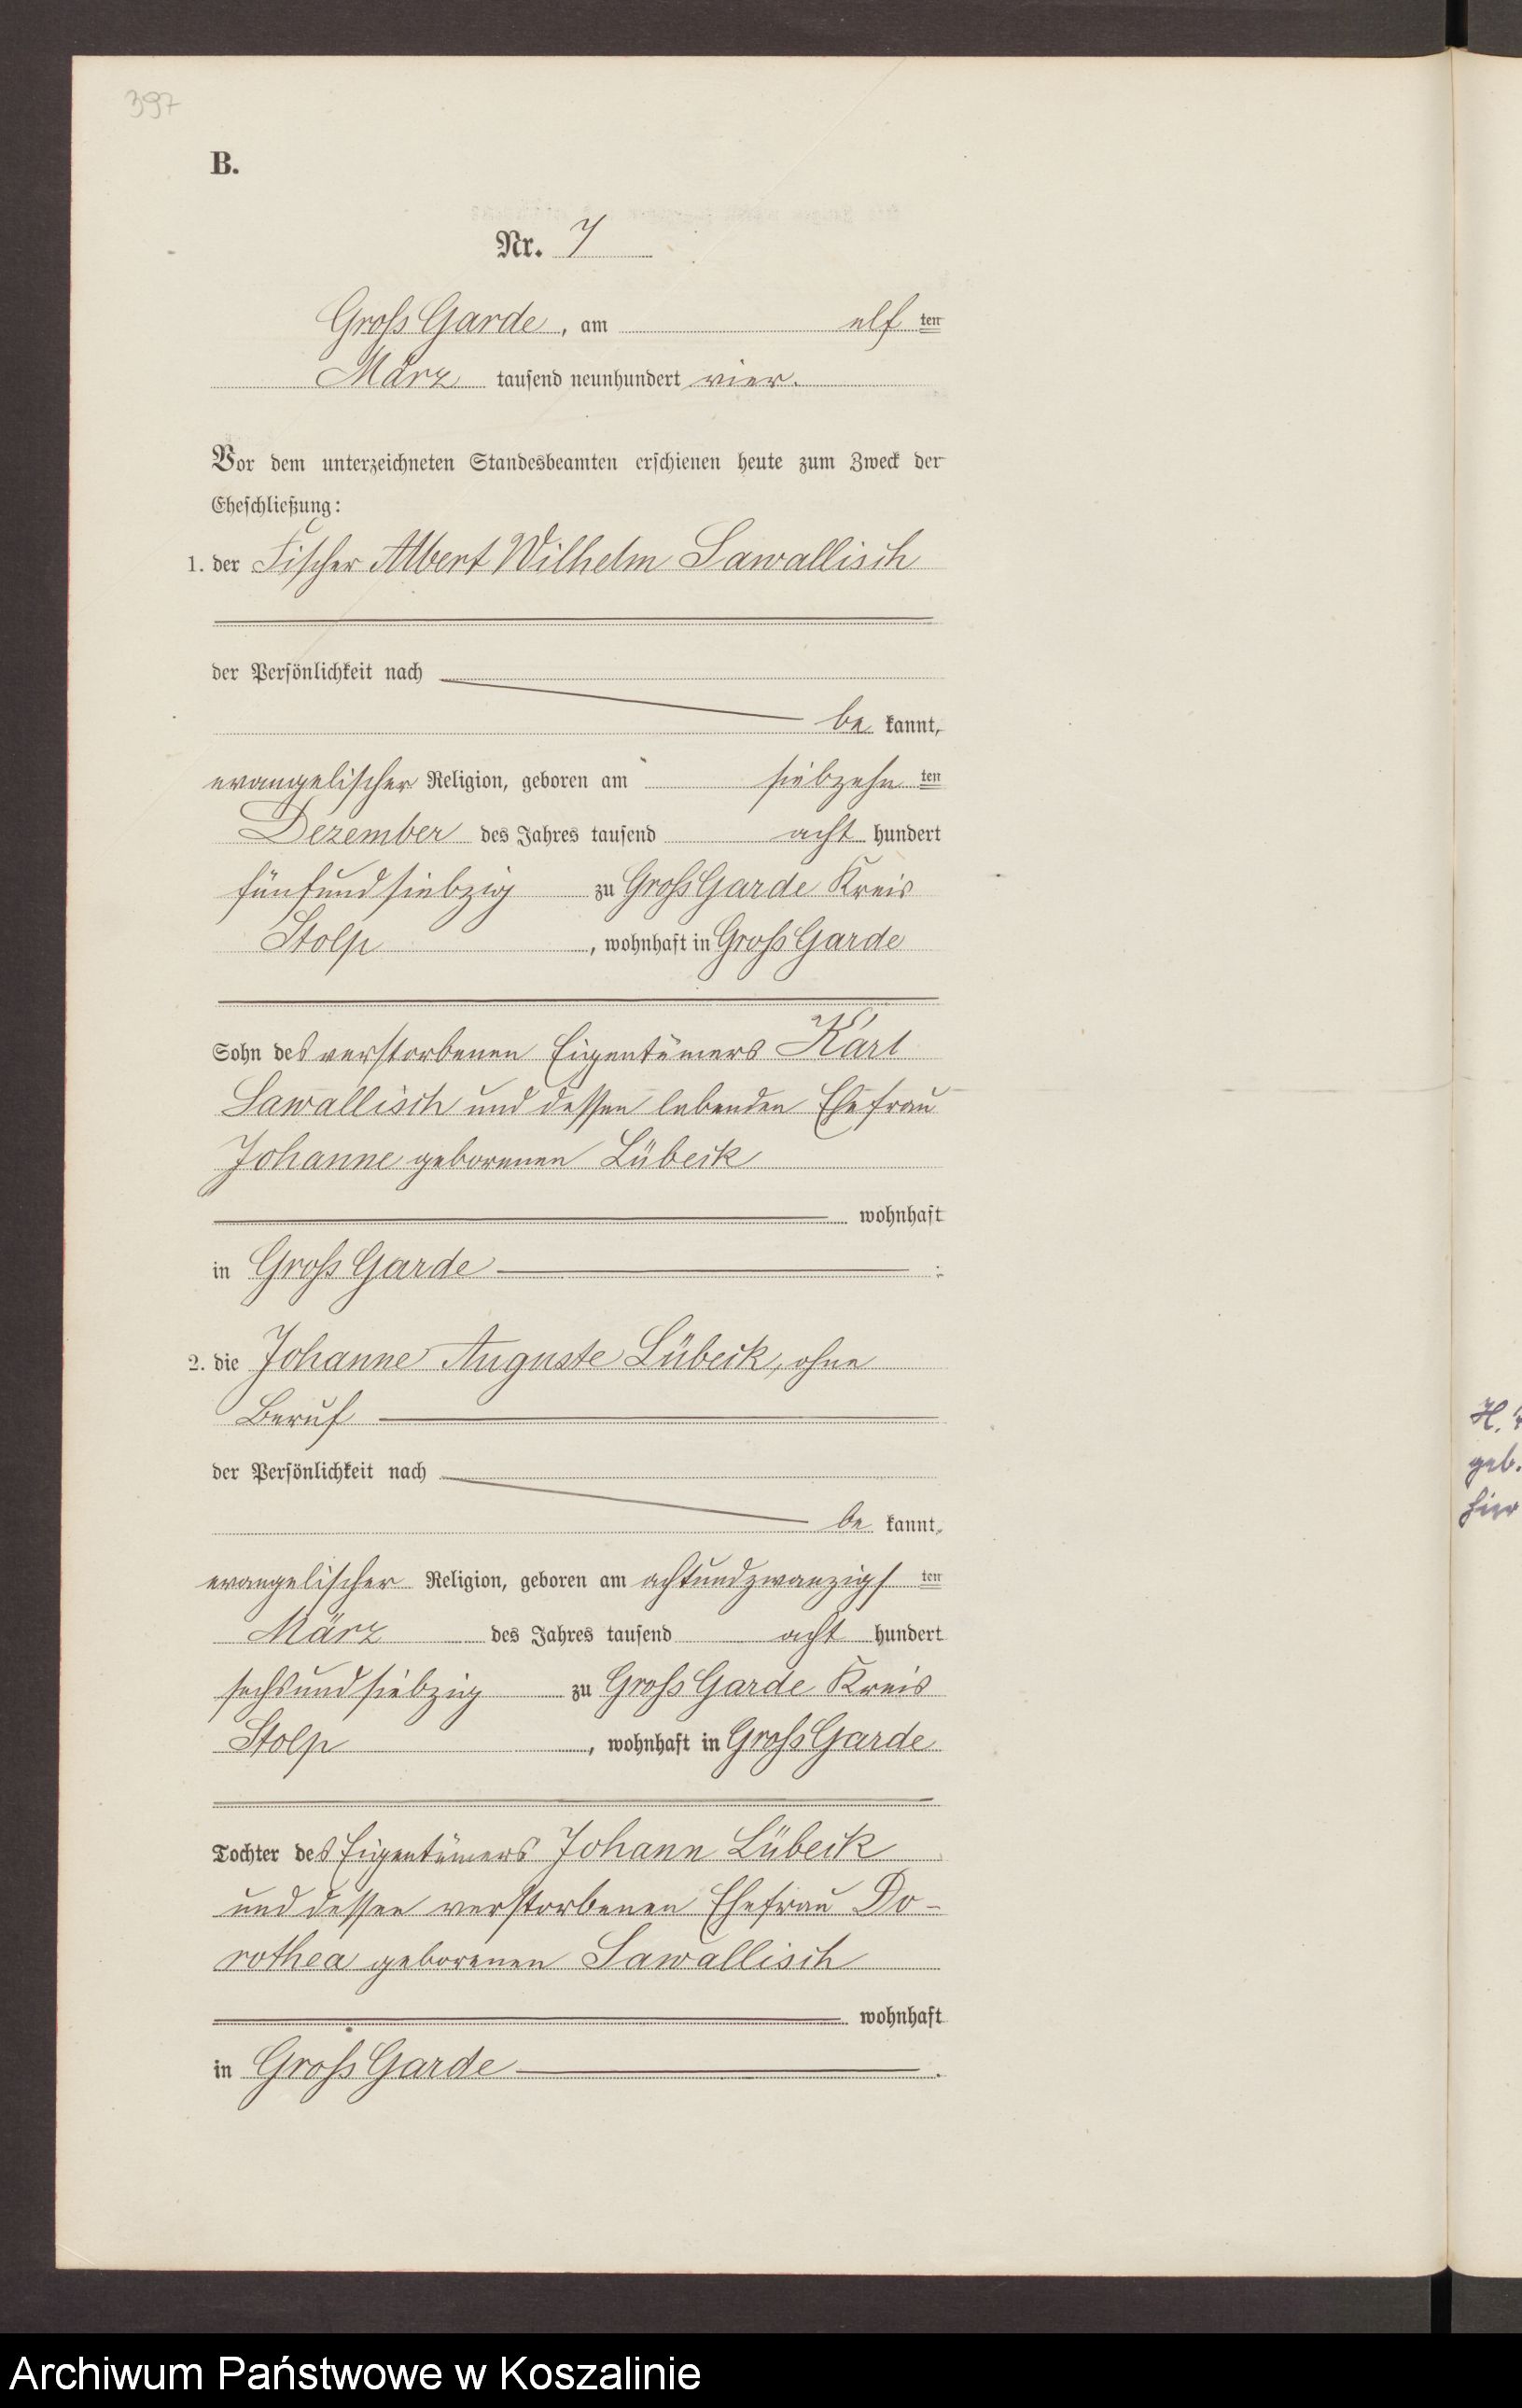 397
B.
Nr. 7
Gross Garde, am elf ten
März tausend neunhundert vier.
Vor dem unterzeichneten Standesbeamten erschienen heute zum Zweck der
Eheschließung:
1. der Fischer Albert Wilhelm Sawallisch
der Persönlichkeit nach
be kannt,
evangelischer Religion, geboren am siebzehn ten
Dezember des Jahres tausend acht hundert
fünfundsiebzig zu Gross Garde Kreis
Stolp, wohnhaft in Gross Garde
Sohn des verstorbenen Eigentümers Karl
Sawallisch und dessen lebenden Ehefrau
Johanne geborenen Lübeck
wohnhaft
in Gross Garde :
2. die Johanne Auguste Lübeck, ohne
Beruf
der Persönlichkeit nach
be kannt,
evangelischer Religion, geboren am achtundzwanzigs ten
März des Jahres tausend acht hundert
sechsundsiebzig zu Gross Garde Kreis
Stolp, wohnhaft in Gross Garde
Tochter des Eigentümers Johann Lübeck
und dessen verstorbenen Ehefrau Do-
rothea geborenen Sawallisch
wohnhaft
in Gross Garde .
H.
geb.
hier
Archiwum Państwowe w Koszalinie